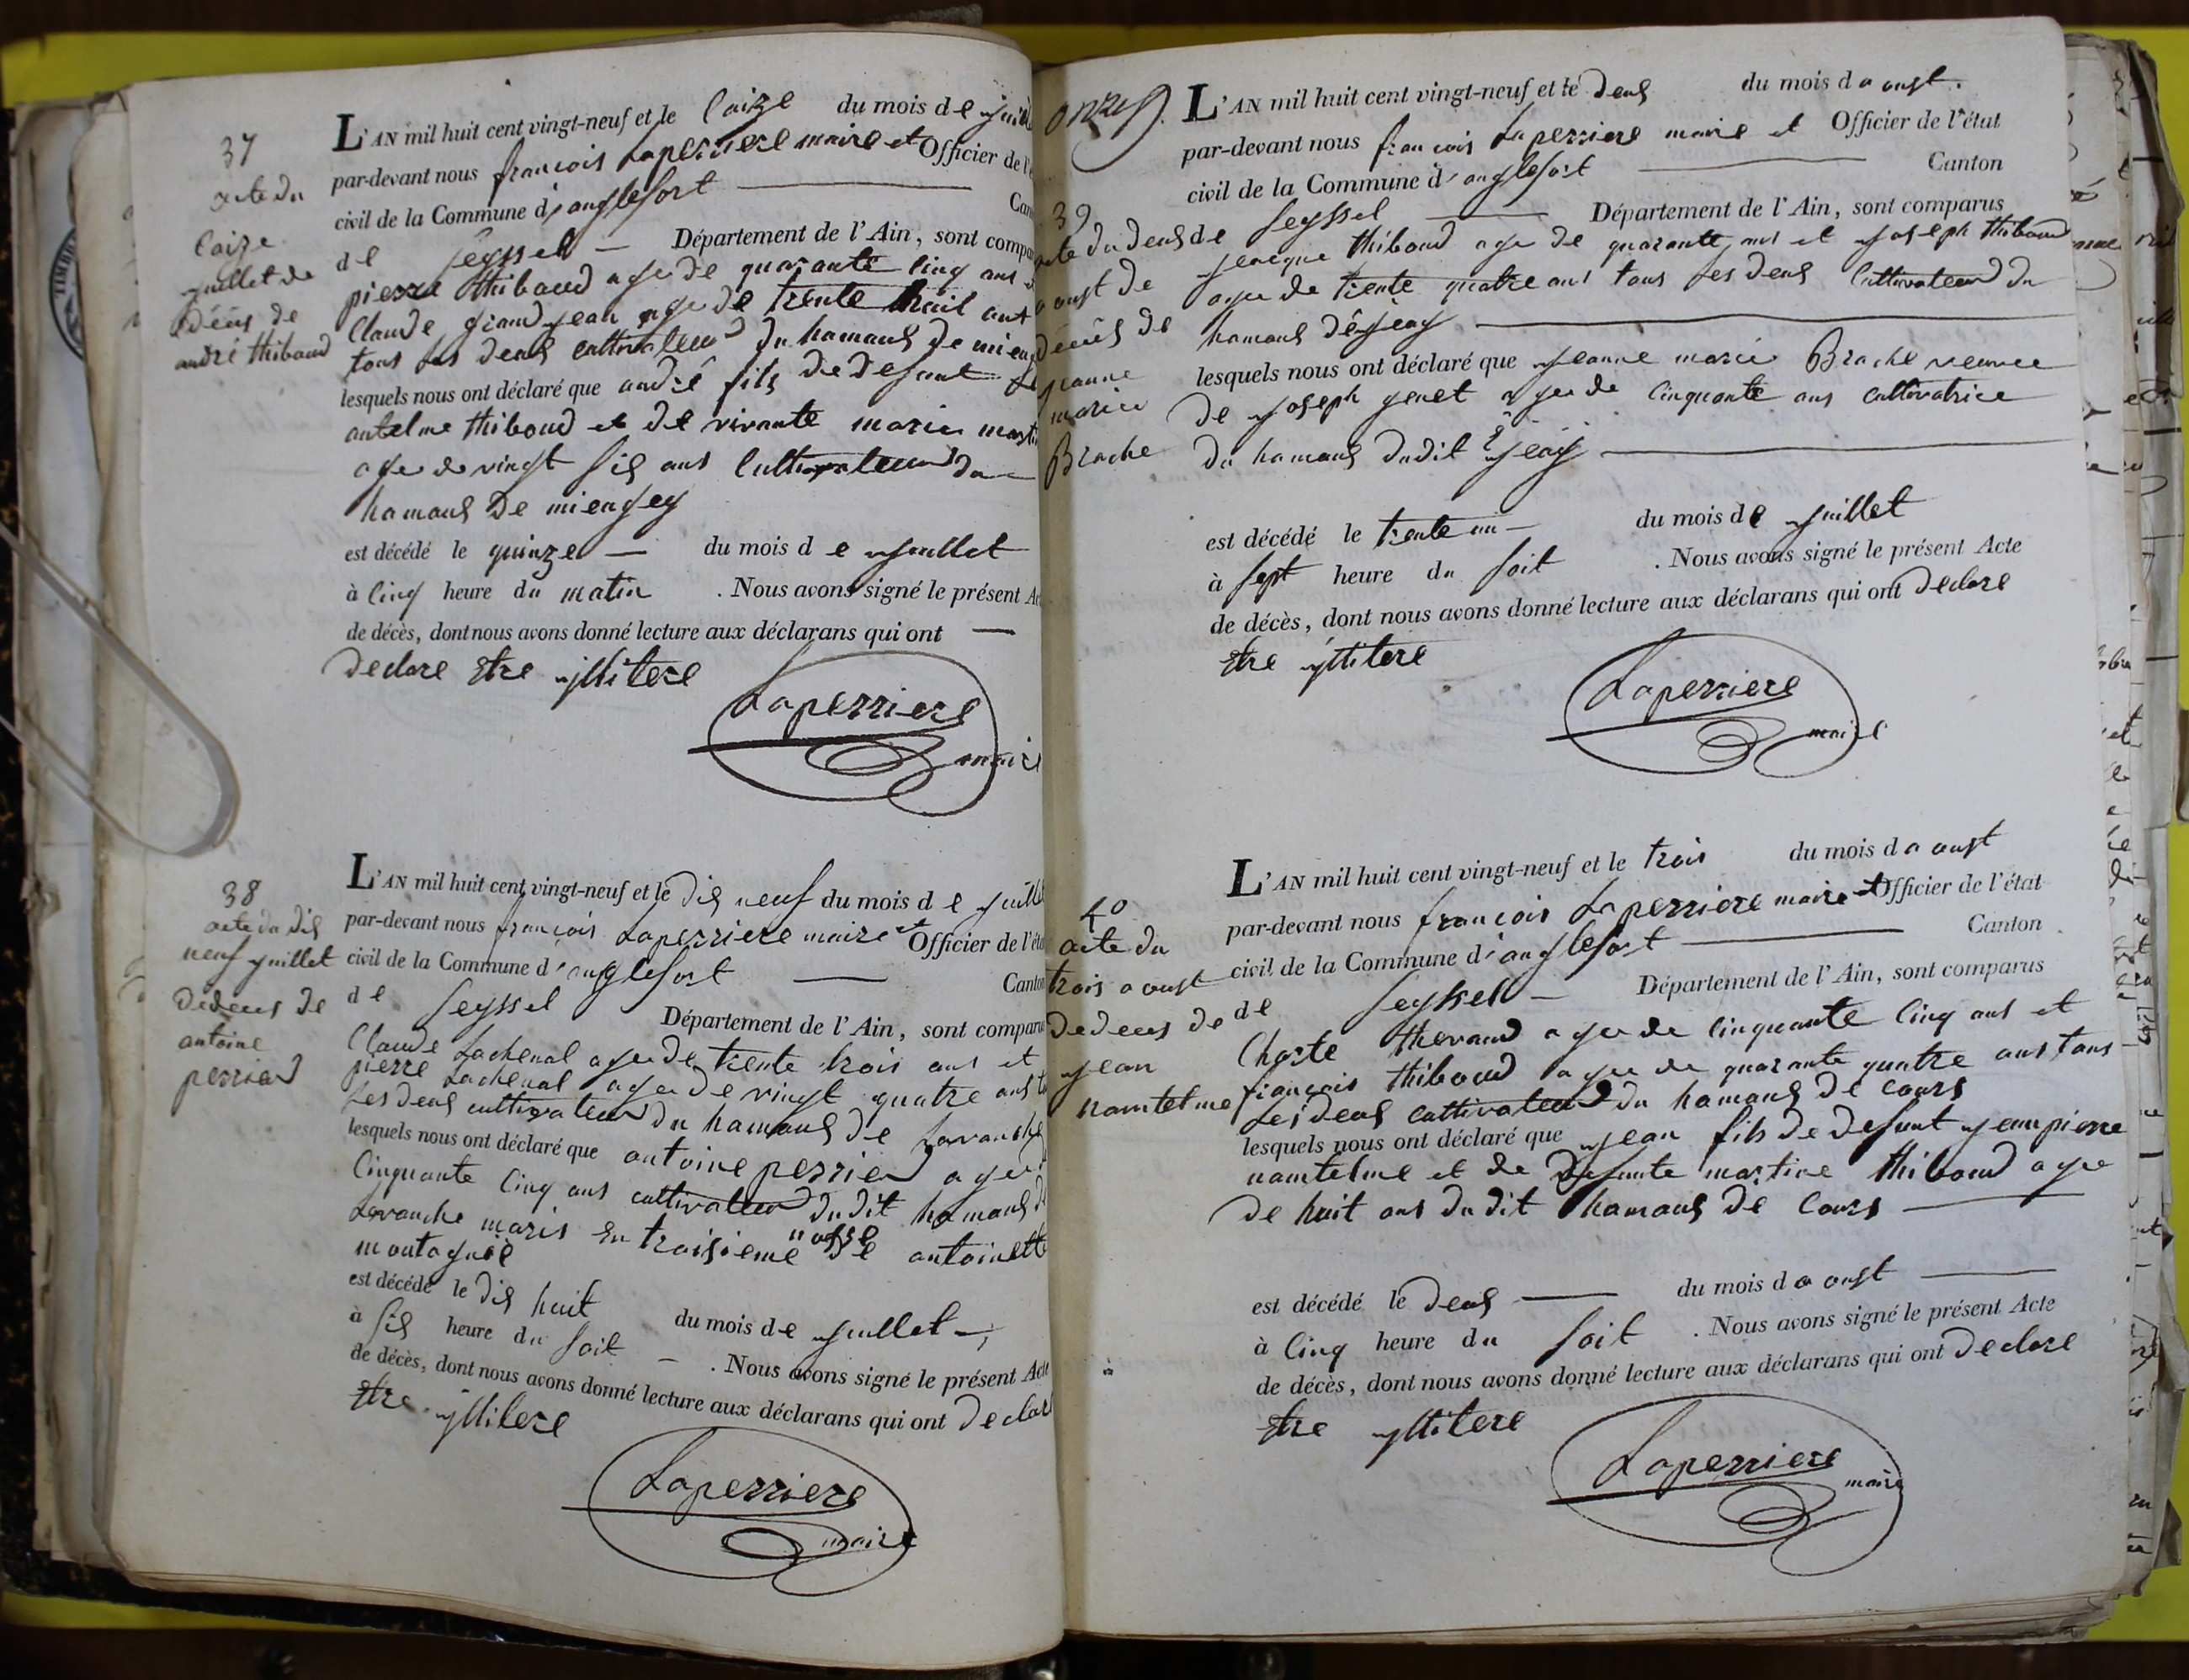 37
acte du
Saize
juillet de
décés de
andré thiboud
L'AN mil huit cent vingt-neuf et le Saize du mois de
par-devant nous francois Laperriere maire et Officier de
civil de la Commune d'anglefort
de Seyssel — Département de l'Ain, sont
pierre thiboud age de quarante cinq ans
Claude grandjean age de trente huit ans
tous les deux cultivateur du hamaus de
lesquels nous ont déclaré que andré fils de defunt
antelme thiboud et de vivante marie
age de vingt six ans cultivateur du
hamaus de miensey
est décédé le quinze — du mois de juillet
à cinq heure du matin . Nous avons signé le présent
de décès, dont nous avons donné lecture aux déclarans qui ont —
declare Etre illitere
Laperriere
maire
38
acte du dix
neuf juillet
de deces de
antoine
perrier
L'AN mil huit cent vingt-neuf et le dix neuf du mois de
par-devant nous francois Laperriere maire et Officier de
civil de la Commune d'anglefort —
de Seyssel Canton
Département de l'Ain, sont
Claude Lachenal age de trente trois ans et
pierre Lachenal age de vingt quatre ans
Les deux cultivateur du hamaus de Lavanche
lesquels nous ont déclaré que antoine perrier age
Cinquante cinq ans cultivateur dudit hamaus
Lavanche maris En troisieme nosse de antoinette
montagnie
est décédé le dix huit du mois de juillet —
à six heure du soit — . Nous avons signé le présent Acte
de décès, dont nous avons donné lecture aux déclarans qui ont
Etre illitere
Laperriere
maire
onze
39
acte du deus
aoust de
décés de
jeanne
marie
Brache
L'AN mil huit cent vingt-neuf et le deus du mois d aoust.
par-devant nous francois Laperriere maire et Officier de l'état
civil de la Commune d'anglefort — Canton
de Seyssel — Département de l'Ain, sont comparus
jacque thiboud age de quarante ans et joseph thiboud
age de trente quatre ans tous les deus Cultivateur du
hamaus
lesquels nous ont déclaré que jeanne marie Brache veuve
de joseph genet age de cinquante ans cultivatrice
du hamaus dudit
est décédé le trente un — du mois de juillet
à sept heure du soit . Nous avons signé le présent Acte
de décès, dont nous avons donné lecture aux déclarans qui ont declare
Etre illitere
Laperriere
maire
40
acte du
trois aoust
de deces de
jean
nantelme
L'AN mil huit cent vingt-neuf et le trois du mois d aoust
par-devant nous francois Laperriere maire et Officier de l'état
civil de la Commune d'anglefort — Canton
de Seyssel — Département de l'Ain, sont comparus
Charle age de cinquante cinq ans et
francois thiboud age de quarante quatre ans tous
Les deus cultivateur du hamaus de cours
lesquels nous ont déclaré que jean fils de defunt jean pierre
nantelme et de defunte martine thiboud age
de huit ans du dit hamaus de Cours —
est décédé le deus — du mois d aoust —
à cinq heure du soit . Nous avons signé le présent Acte
de décès, dont nous avons donné lecture aux déclarans qui ont declare
Etre illitere
Laperriere
maire